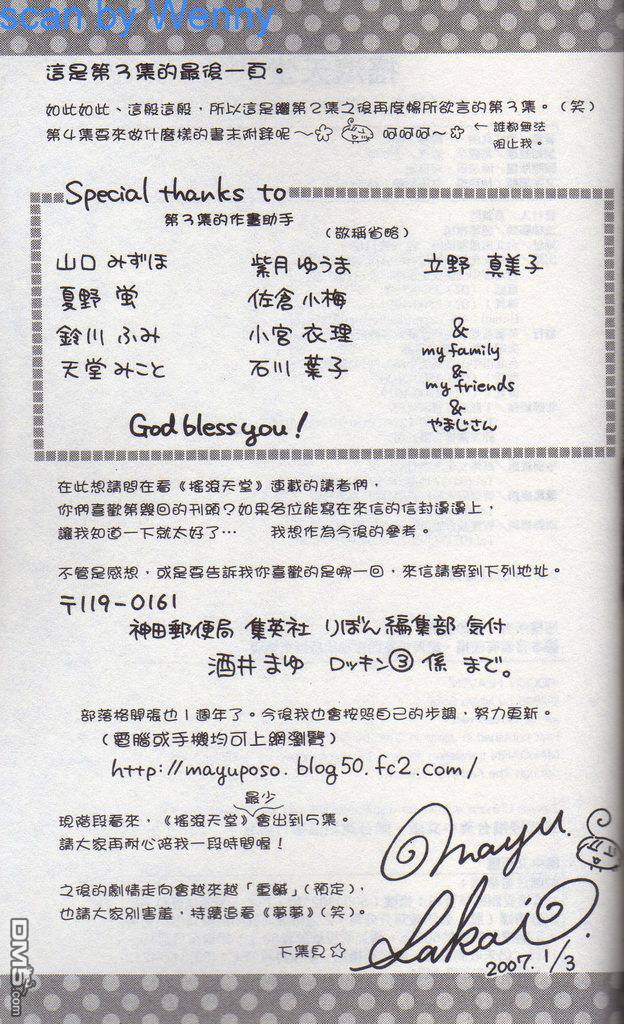 scan by Wenny
這是第3集的最後一頁。
如此如此、這般這般，所以這是繼第2集之後再度暢所欲言的第3集。（笑）
第4集要來做什麼樣的書末附錄呢～ 呵呵呵～ ←誰都無法
阻止我。
Special thanks to
第3集的作畫助手
（敬稱省略）
山口 みずほ 紫月 ゆうま 立野 真美子
夏野 蛍 佐倉 小梅
鈴川 ふみ 小宮 衣理
天堂 みこと 石川 葉子
&
my family
&
my friends
&
やまじさん
God bless you!
在此想請問在看《搖滾天堂》連載的讀者們，
你們喜歡第幾回的刊頭？如果各位能寫在來信的信封邊邊上，
讓我知道一下就太好了… 我想作為今後的參考。
不管是感想，或是要告訴我你喜歡的是哪一回，來信請寄到下列地址。
〒119-0161
神田郵便局 集英社 りぼん編集部 気付
酒井 まゆ ロッキン③ 係 まで。
部落格開張也1週年了。今後我也會按照自己的步調，努力更新。
（電腦或手機均可上網瀏覽）
http://mayuposo.blog50.fc2.com/
最少
現階段看來，《搖滾天堂》會出到5集。
請大家再耐心陪我一段時間喔！
之後的劇情走向會越來越「重鹹」（預定），
也請大家別害羞，持續追看《夢夢》（笑）。
下集見☆
mayu.
Sakai.
2007. 1/3
DM5.com